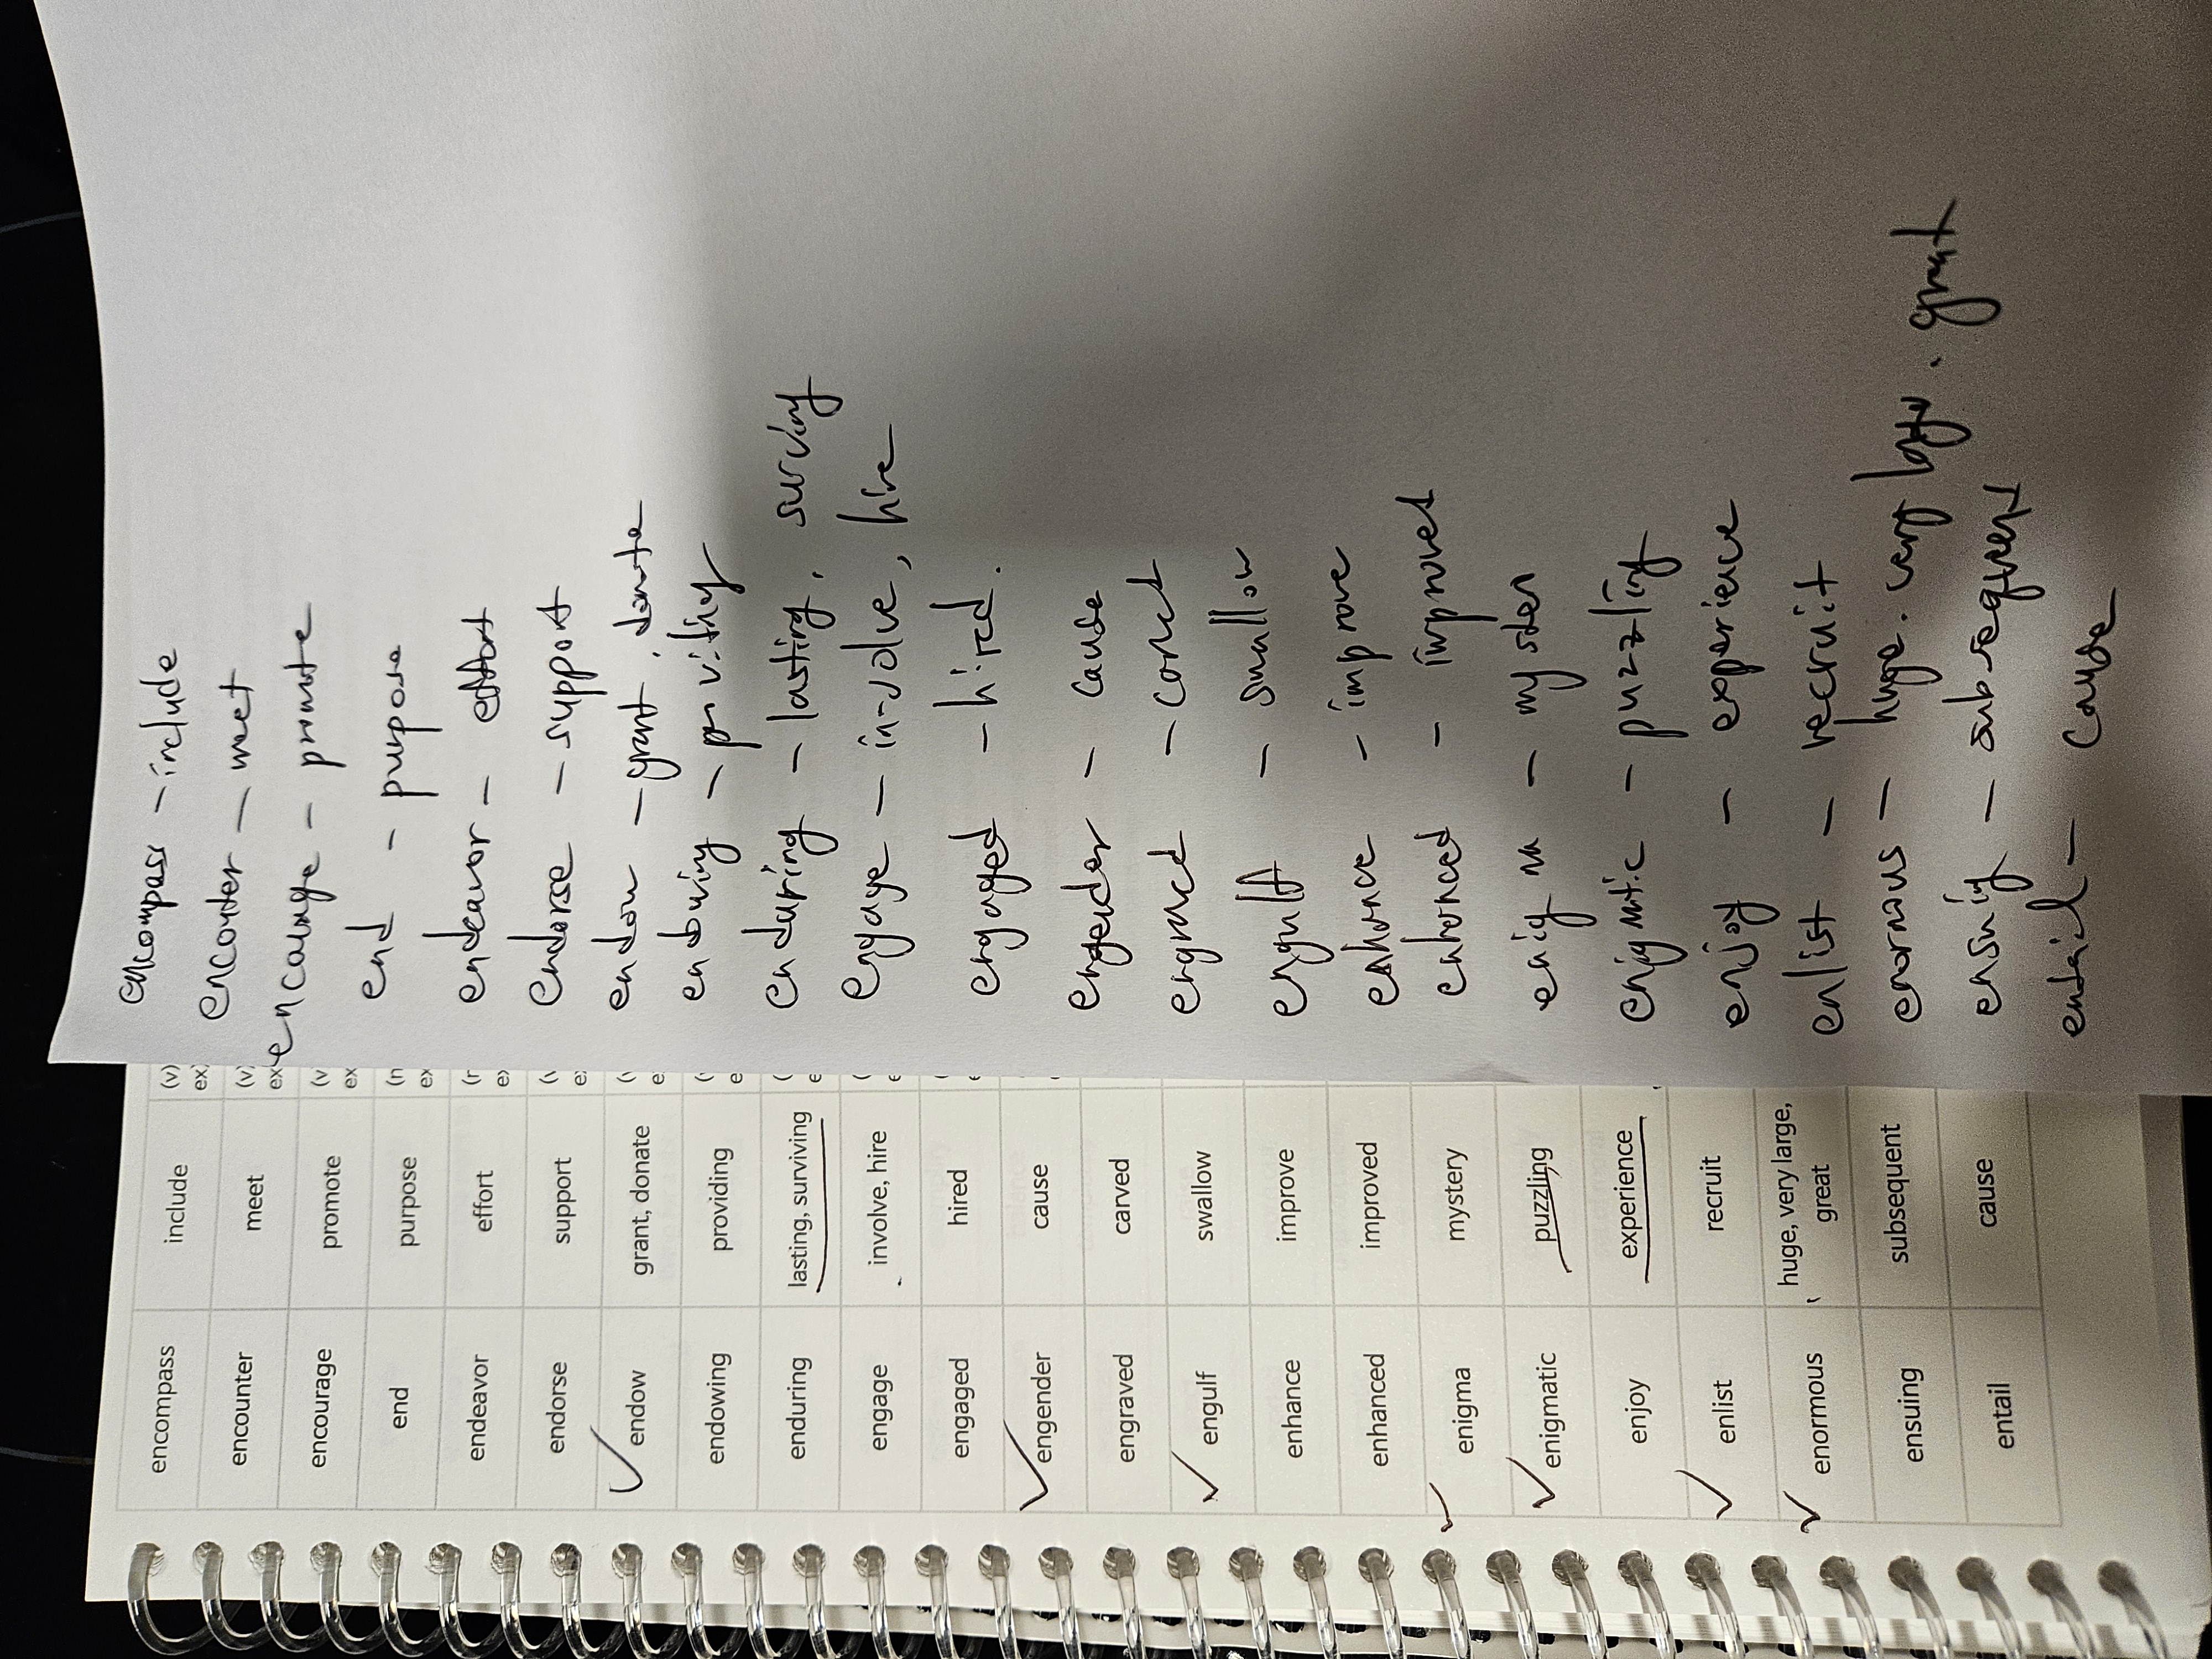 encompass include (v) ex)
encounter meet (v) ex
encourage promote (v ex
end purpose (n ex
endeavor effort (n e)
endorse support (v e:
endow grant, donate (v e.
endowing providing ( e
enduring lasting, surviving ( e
engage involve, hire ( e
engaged hired (
engender cause
engraved carved
engulf swallow
enhance improve
enhanced improved
enigma mystery
enigmatic puzzling
enjoy experience
enlist recruit
enormous huge, very large,
great
ensuing subsequent
entail cause
encompass - include
enconter - meet
encourage - promote
end - purpose
endeavor - effort
endorse - support
endow - grant, donate
endowing - providing
enduring - lasting, surving
engage - involve, hire
engaged - hired.
engender - cause
engraved -
engulf - swallow
enhance - improve
enhanced - improved
enigma - mystery
enigmatic - puzzling
enjoy - experience
enlist - recruit
enormous - huge. very large. great
ensuing - subsequent
entail - cause